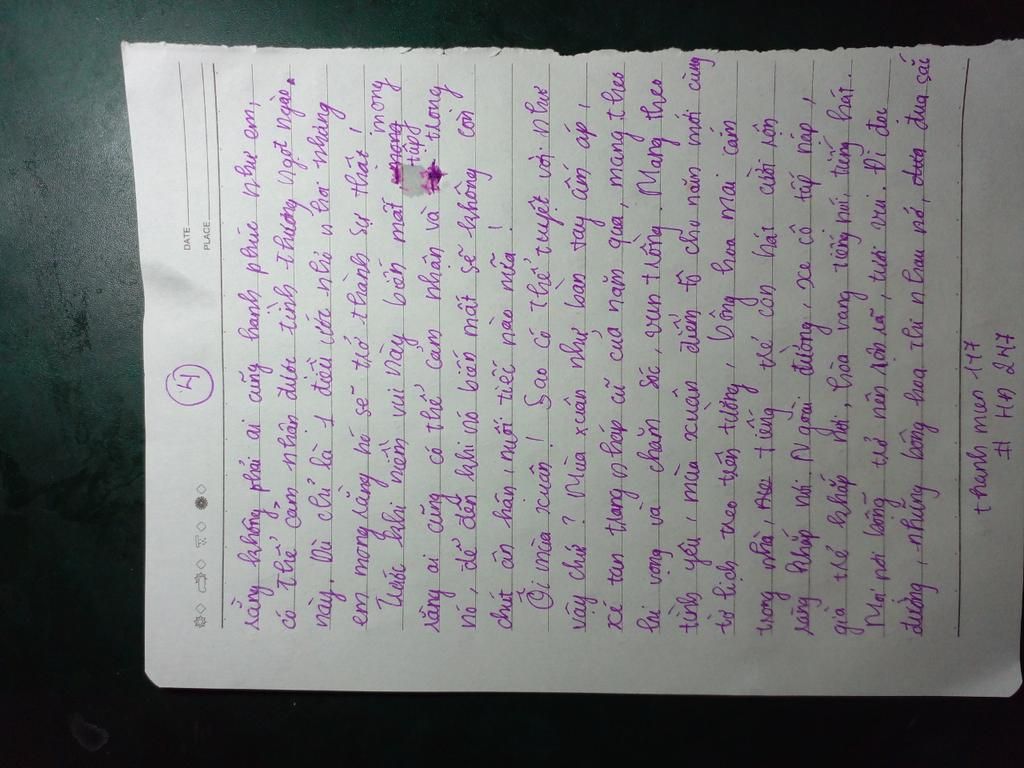 DATE
PLACE
4
rằng không phải ai cũng hạnh phúc như em,
có thể cảm nhận được tình thương ngọt ngào
này. Dù chỉ là 1 điều ước nhỏ nhoi nhưng
em mong rằng nó sẽ trở thành sự thật!
Trước khi niềm vui này biến mất mong
rằng ai cũng có thể cảm nhận và túng trong
nó, để đến khi nó biến mất sẽ không còn
chút ân hận, nuối tiếc nào nữa!
Ôi mùa xuân! Sao có thể tuyệt vời như
vậy chứ? Mùa xuân như bàn tay ấm áp,
xé tan trang nháp cũ của năm qua, mang theo
hi vọng và chăm sóc, vun trồng. Mang theo
tình yêu, mùa xuân điểm tô cho năm mới cùng
tờ lịch treo trên tường, bông hoa mai cắm
trong nhà, tiếng trẻ con hát cười rộn
ràng khắp nơi. Ngoài đường, xe cộ tấp nập,
già trẻ khắp nơi, hòa vang tiếng nói, tiếng hát.
Mọi nơi bỗng trở nên rộn rã, tươi vui. Đi dọc
đường, những bông hoa thi nhau nở, đua sắc
thanh mien 117
# HĐ 247